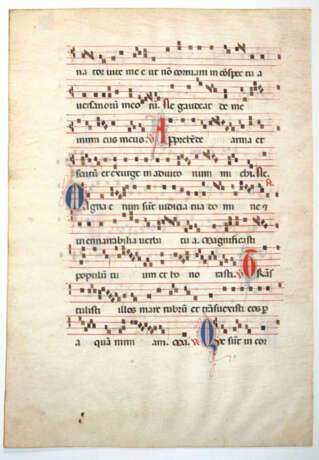 na tor vite me e ut nō corruam in cōspec tu a
versariorū meo rū. Ne gaudeat de me
inimi cus meus. V Apprehēde arma et
scutū et exurge in adiuto rium mi chi. Ne. R
Magna e nim sūt iudicia tua do mi ne ⁊
inenarrabilia verba tu a. Magnificasti
populū tu um et ho no rasti. V Trās
tulisti illos mare rubrū et trāsvexisti eos p
a quā nimi am. Ma. V Que sūt in cor